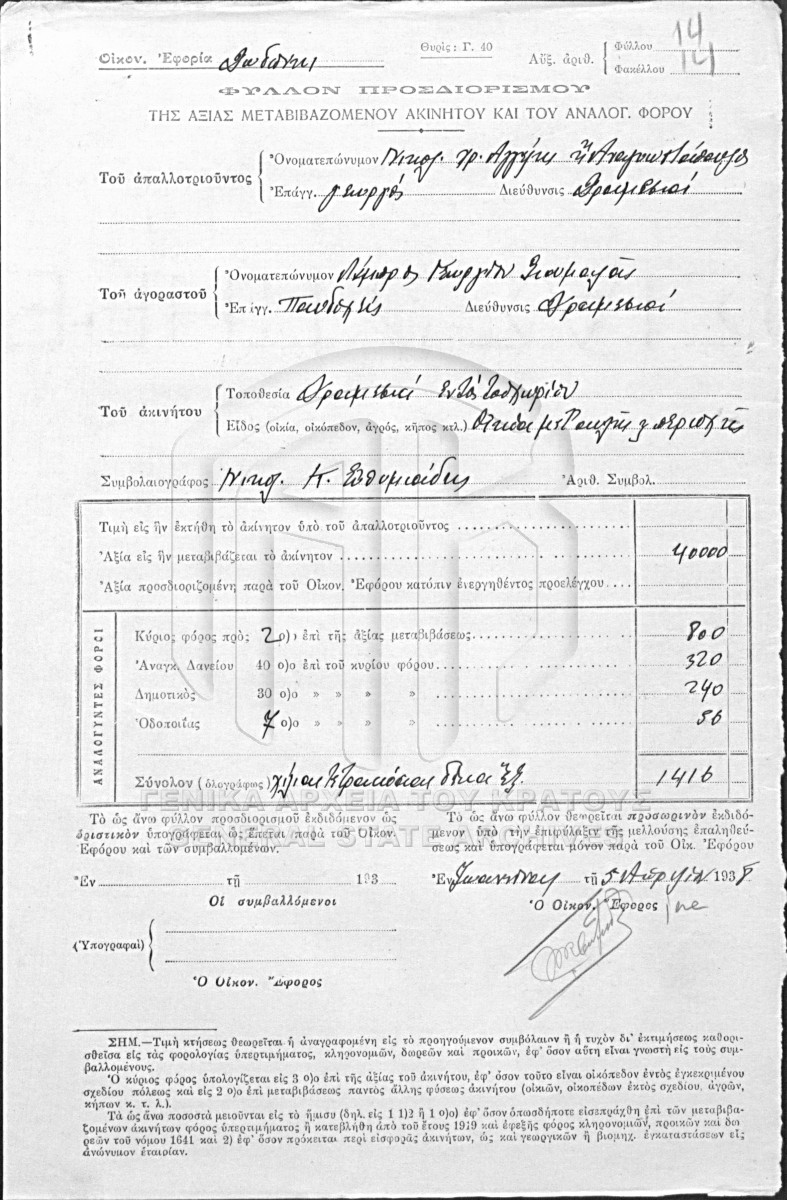 Οἰκον. Ἐφορία Δωδώνης
Θυρὶς: Γ. 40
Αὔξ. ἀριθ. { Φύλλου 14
Φακέλλου 14
ΦΥΛΛΟΝ ΠΡΟΣΔΙΟΡΙΣΜΟΥ
ΤΗΣ ΑΞΙΑΣ ΜΕΤΑΒΙΒΑΖΟΜΕΝΟΥ ΑΚΙΝΗΤΟΥ ΚΑΙ ΤΟΥ ΑΝΑΛΟΓ. ΦΟΡΟΥ
Τοῦ ἀπαλλοτριοῦντος
Ὀνοματεπώνυμον Νικολ. Χρ.
Ἐπάγγ. γεωργός Διεύθυνσις Δραμεσιοί
Τοῦ ἀγοραστοῦ
Ὀνοματεπώνυμον Λάμπρος Γεωργίου
Ἐπάγγ. Πανδοχεύς Διεύθυνσις Δραμεσιοί
Τοῦ ἀκινήτου
Τοποθεσία Δραμεσιοί ἐντὸς τοῦ χωρίου
Εἶδος (οἰκία, οἰκόπεδον, ἀγρός, κῆπος κτλ.)
Συμβολαιογράφος Νικολ. Κ. Εὐθυμιάδης Ἀριθ. Συμβολ.
Τιμὴ εἰς ἣν ἐκτήθη τὸ ἀκίνητον ὑπὸ τοῦ ἀπαλλοτριοῦντος
Ἀξία εἰς ἣν μεταβιβάζεται τὸ ἀκίνητον 40000
Ἀξία προσδιοριζομένη παρὰ τοῦ Οἰκον. Ἐφόρου κατόπιν ἐνεργηθέντος προελέγχου
ΑΝΑΛΟΓΟΥΝΤΕΣ ΦΟΡΟΙ
Κύριος φόρος πρὸς 2 ο)ο ἐπὶ τῆς ἀξίας μεταβιβάσεως 800
Ἀναγκ. Δανείου 40 ο)ο ἐπὶ τοῦ κυρίου φόρου 320
Δημοτικὸς 30 ο)ο » » » » 240
Ὁδοποιΐας 7 ο)ο » » » » 56
Σύνολον (ὁλογράφως) χίλιαι τετρακόσιαι δέκα ἕξ 1416
ΓΕΝΙΚΑ ΑΡΧΕΙΑ ΤΟΥ ΚΡΑΤΟΥΣ
GENERAL STATE ARCHIVES
Τὸ ὡς ἄνω φύλλον προσδιορισμοῦ ἐκδιδόμενον ὡς
ὁριστικὸν ὑπογράφεται ὡς ἕπεται παρὰ τοῦ Οἰκον.
Ἐφόρου καὶ τῶν συμβαλλομένων.
Ἐν τῇ 193
Οἱ συμβαλλόμενοι
(Ὑπογραφαί)
Ὁ Οἰκον. Ἔφορος
Τὸ ὡς ἄνω φύλλον θεωρεῖται προσωρινὸν ἐκδιδό-
μενον ὑπὸ τὴν ἐπιφύλαξιν τῆς μελλούσης ἐπαληθεύ-
σεως καὶ ὑπογράφεται μόνον παρὰ τοῦ Οἰκ. Ἐφόρου
Ἐν Ἰωαννίνοις τῇ 5 Ἀπριλίου 1938
Ὁ Οἰκον. Ἔφορος
ΣΗΜ.—Τιμὴ κτήσεως θεωρεῖται ἡ ἀναγραφομένη εἰς τὸ προηγούμενον συμβόλαιον ἢ ἡ τυχὸν δι' ἐκτιμήσεως καθορι-
σθεῖσα εἰς τὰς φορολογίας ὑπερτιμήματος, κληρονομιῶν, δωρεῶν καὶ προικῶν, ἐφ' ὅσον αὕτη εἶναι γνωστὴ εἰς τοὺς συμ-
βαλλομένους.
Ὁ κύριος φόρος ὑπολογίζεται εἰς 3 ο)ο ἐπὶ τῆς ἀξίας τοῦ ἀκινήτου, ἐφ' ὅσον τοῦτο εἶναι οἰκόπεδον ἐντὸς ἐγκεκριμένου
σχεδίου πόλεως καὶ εἰς 2 ο)ο ἐπὶ μεταβιβάσεως παντὸς ἄλλης φύσεως ἀκινήτου (οἰκιῶν, οἰκοπέδων ἐκτὸς σχεδίου, ἀγρῶν,
κήπων κ. τ. λ.).
Τὰ ὡς ἄνω ποσοστὰ μειοῦνται εἰς τὸ ἥμισυ (δηλ. εἰς 1 1)2 ἢ 1 ο)ο) ἐφ' ὅσον ὁπωσδήποτε εἰσεπράχθη ἐπὶ τῶν μεταβιβα-
ζομένων ἀκινήτων φόρος ὑπερτιμήματος ἢ κατεβλήθη ἀπὸ τοῦ ἔτους 1919 καὶ ἐφεξῆς φόρος κληρονομιῶν, προικῶν καὶ δω-
ρεῶν τοῦ νόμου 1641 καὶ 2) ἐφ' ὅσον πρόκειται περὶ εἰσφορᾶς ἀκινήτων, ὡς καὶ γεωργικῶν ἢ βιομηχ. ἐγκαταστάσεων εἰς
ἀνώνυμον ἑταιρίαν.